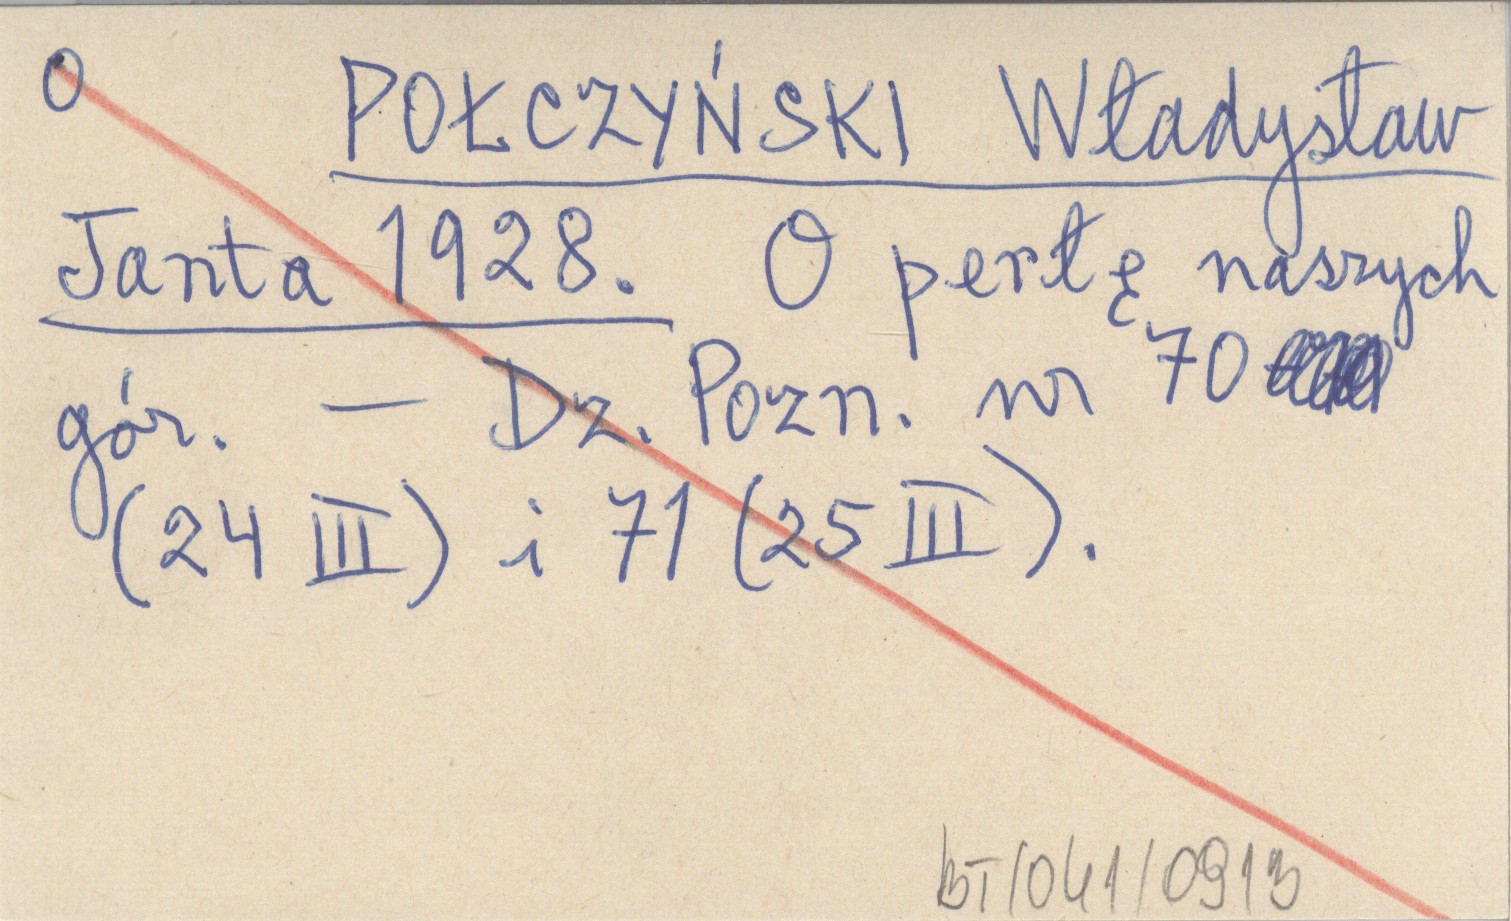 O POŁCZYŃSKI Władysław
Janta 1928. O perłę naszych
gór. — Dz. Pozn. nr 70
(24 III) i 71 (25 III).
BT/041/0913